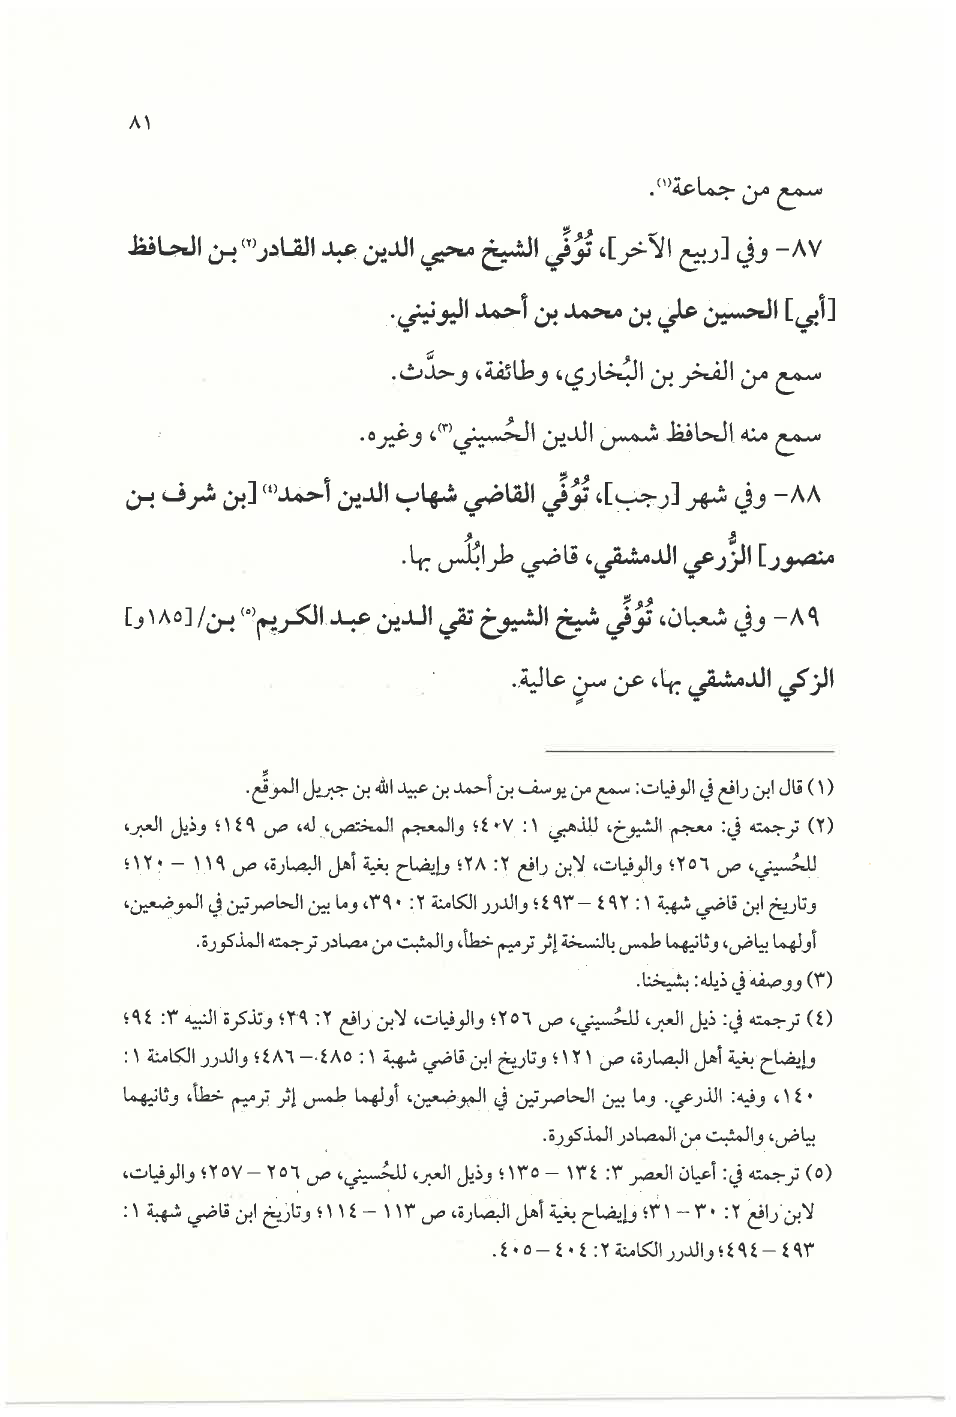 ٨١
سمع من جماعة(١).
٨٧- وفي [ربيع الآخر]، تُوُفِّي الشيخ محيي الدين عبد القادر(٢) بن الحافظ
[أبي] الحسين علي بن محمد بن أحمد اليونيني.
سمع من الفخر بن البُخاري، وطائفة، وحدَّث.
سمع منه الحافظ شمس الدين الحُسيني(٣)، وغيره.
٨٨- وفي شهر [رجب]، تُوُفِّي القاضي شهاب الدين أحمد(٤) [بن شرف بن
منصور] الزُّرعي الدمشقي، قاضي طرابُلُس بها.
٨٩- وفي شعبان، تُوُفِّي شيخ الشيوخ تقي الدين عبد الكريم(٥) بن/ [١٨٥و]
الزكي الدمشقي بها، عن سنٍ عالية.
(١) قال ابن رافع في الوفيات: سمع من يوسف بن أحمد بن عبيد الله بن جبريل الموقِّع.
(٢) ترجمته في: معجم الشيوخ، للذهبي ١: ٤٠٧؛ والمعجم المختص، له، ص ١٤٩؛ وذيل العبر،
للحُسيني، ص ٢٥٦؛ والوفيات، لابن رافع ٢: ٢٨؛ وإيضاح بغية أهل البصارة، ص ١١٩ – ١٢٠؛
وتاريخ ابن قاضي شهبة ١: ٤٩٢ – ٤٩٣؛ والدرر الكامنة ٢: ٣٩٠، وما بين الحاصرتين في الموضعين،
أولهما بياض، وثانيهما طمس بالنسخة إثر ترميم خطأ، والمثبت من مصادر ترجمته المذكورة.
(٣) ووصفه في ذيله: بشيخنا.
(٤) ترجمته في: ذيل العبر، للحُسيني، ص ٢٥٦؛ والوفيات، لابن رافع ٢: ٢٩؛ وتذكرة النبيه ٣: ٩٤؛
وإيضاح بغية أهل البصارة، ص ١٢١؛ وتاريخ ابن قاضي شهبة ١: ٤٨٥ – ٤٨٦؛ والدرر الكامنة ١:
١٤٠، وفيه: الذرعي. وما بين الحاصرتين في الموضعين، أولهما طمس إثر ترميم خطأ، وثانيهما
بياض، والمثبت من المصادر المذكورة.
(٥) ترجمته في: أعيان العصر ٣: ١٣٤ – ١٣٥؛ وذيل العبر، للحُسيني، ص ٢٥٦ – ٢٥٧؛ والوفيات،
لابن رافع ٢: ٣٠ – ٣١؛ وإيضاح بغية أهل البصارة، ص ١١٣ – ١١٤؛ وتاريخ ابن قاضي شهبة ١:
٤٩٣ – ٤٩٤؛ والدرر الكامنة ٢: ٤٠٤ – ٤٠٥.